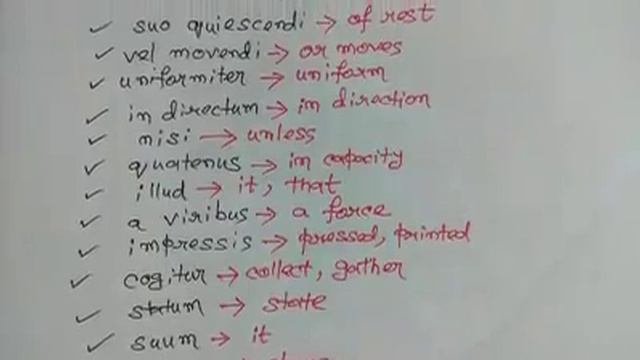 ✓ suo quiescendi → of rest
✓ vel movendi → or moves
✓ uniformiter → uniform
✓ in directum → in direction
✓ nisi → unless
✓ quatenus → in capacity
✓ illud → it, that
✓ a viribus → a force
✓ impressis → pressed, printed
✓ cogitur → collect, gather
✓ statum → state
✓ suum → it